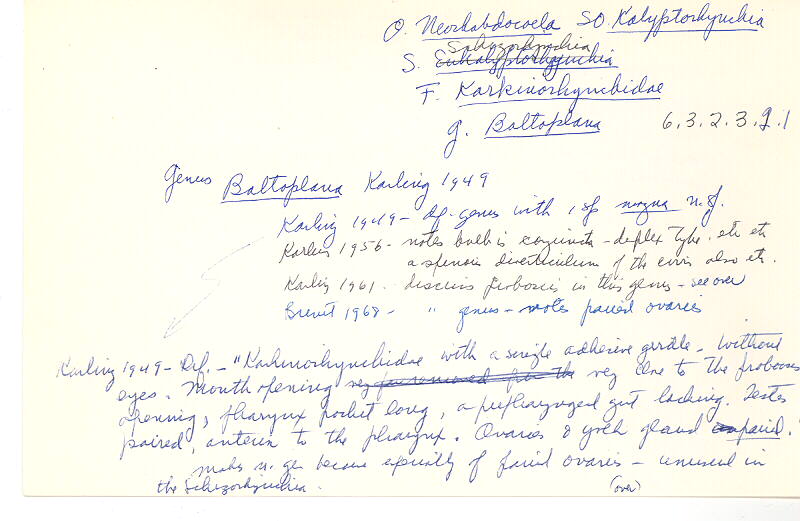 O. Neorhabdocoela SO Kalyptorhynchia
Schizorhynchia
S. Eukalyptorhynchia
F. Karkinorhynchidae
g. Baltoplana 6.3.2.3.9.1
Genus Baltoplana Karling 1949
Karling 1949 - Df. genus with 1 sp magna n. sp.
Karling 1956 - notes bulb is conjuncta - duplex type. etc etc
a spenoin diverticulum of the cirrus also etc.
Karling 1961. discuss proboscis in this genus - see over
Brunet 1968 - " genus - notes paired ovaries
Karling 1949 - Df. - "Karkinorhynchidae with a single adhesive girdle - Without
eyes. Mouth opening very close to the proboscis
opening, pharynx pocket long, a prepharyngeal gut lacking. Testes
paired, anterior to the pharynx. Ovaries & yolk gland paired."
makes n. gen because especially of paired ovaries - unusual in
the Schizorhynchia. (over)